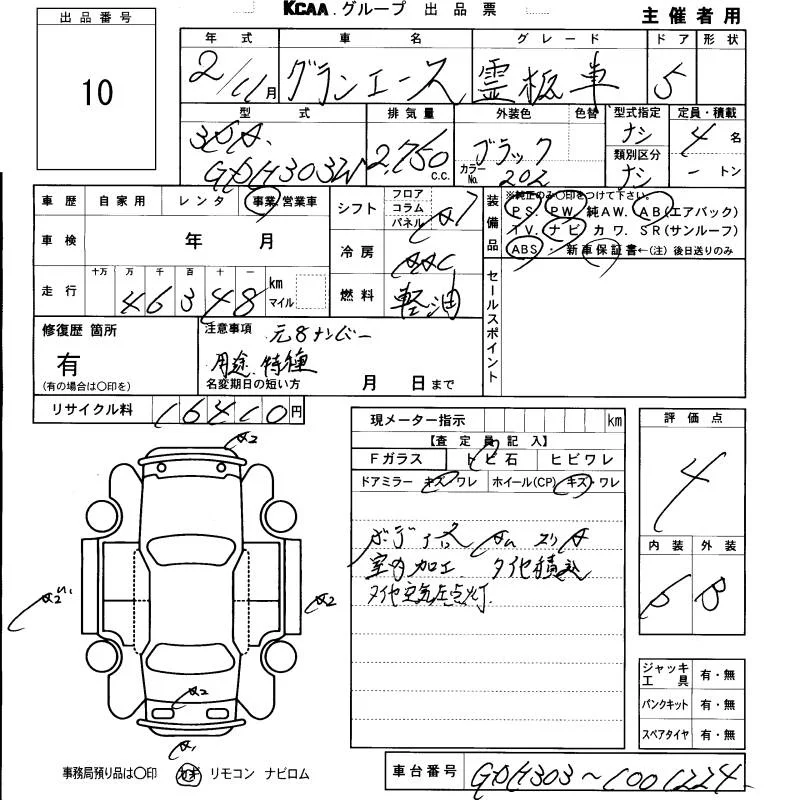 KCAA.グループ 出品票
主催者用
出品番号
10
年式 車名 グレード ドア 形状
2/11月 グランエース 霊柩車 5
型式 排気量 外装色 色替 型式指定 定員・積載
3DA-
GDH303W 2,750 c.c. ブラック ナシ 4名
カラーNo. 202 類別区分 ナシ -トン
車歴 自家用 レンタ 事業/営業車
シフト フロア コラム パネル A7
装備品 ※純正のみ〇印をつけて下さい。
PS. PW 純AW. AB(エアバック)
TV. ナビ カワ. SR(サンルーフ)
ABS・新車保証書←(注)後日送りのみ
車検 年 月
冷房 AAC
走行 十万 万 千 百 十 一
46348 km マイル
燃料 軽油
セールスポイント
修復歴 箇所
有
(有の場合は〇印を)
注意事項 元8ナンバー
用途 特種
名変期日の短い方 月 日まで
リサイクル料 16410円
現メーター指示 km
【査定員記入】
Fガラス トビ石 ヒビワレ
ドアミラー キズ・ワレ ホイール(CP) キズ・ワレ
評価点
4
室内加工 タイヤ積込
タイヤ空気圧点灯
内装 外装
B B
A2
A2
A2
A2
A1
ジャッキ工具 有・無
パンクキット 有・無
スペアタイヤ 有・無
事務局預り品は〇印 カギ リモコン ナビロム
車台番号 GDH303~1001224